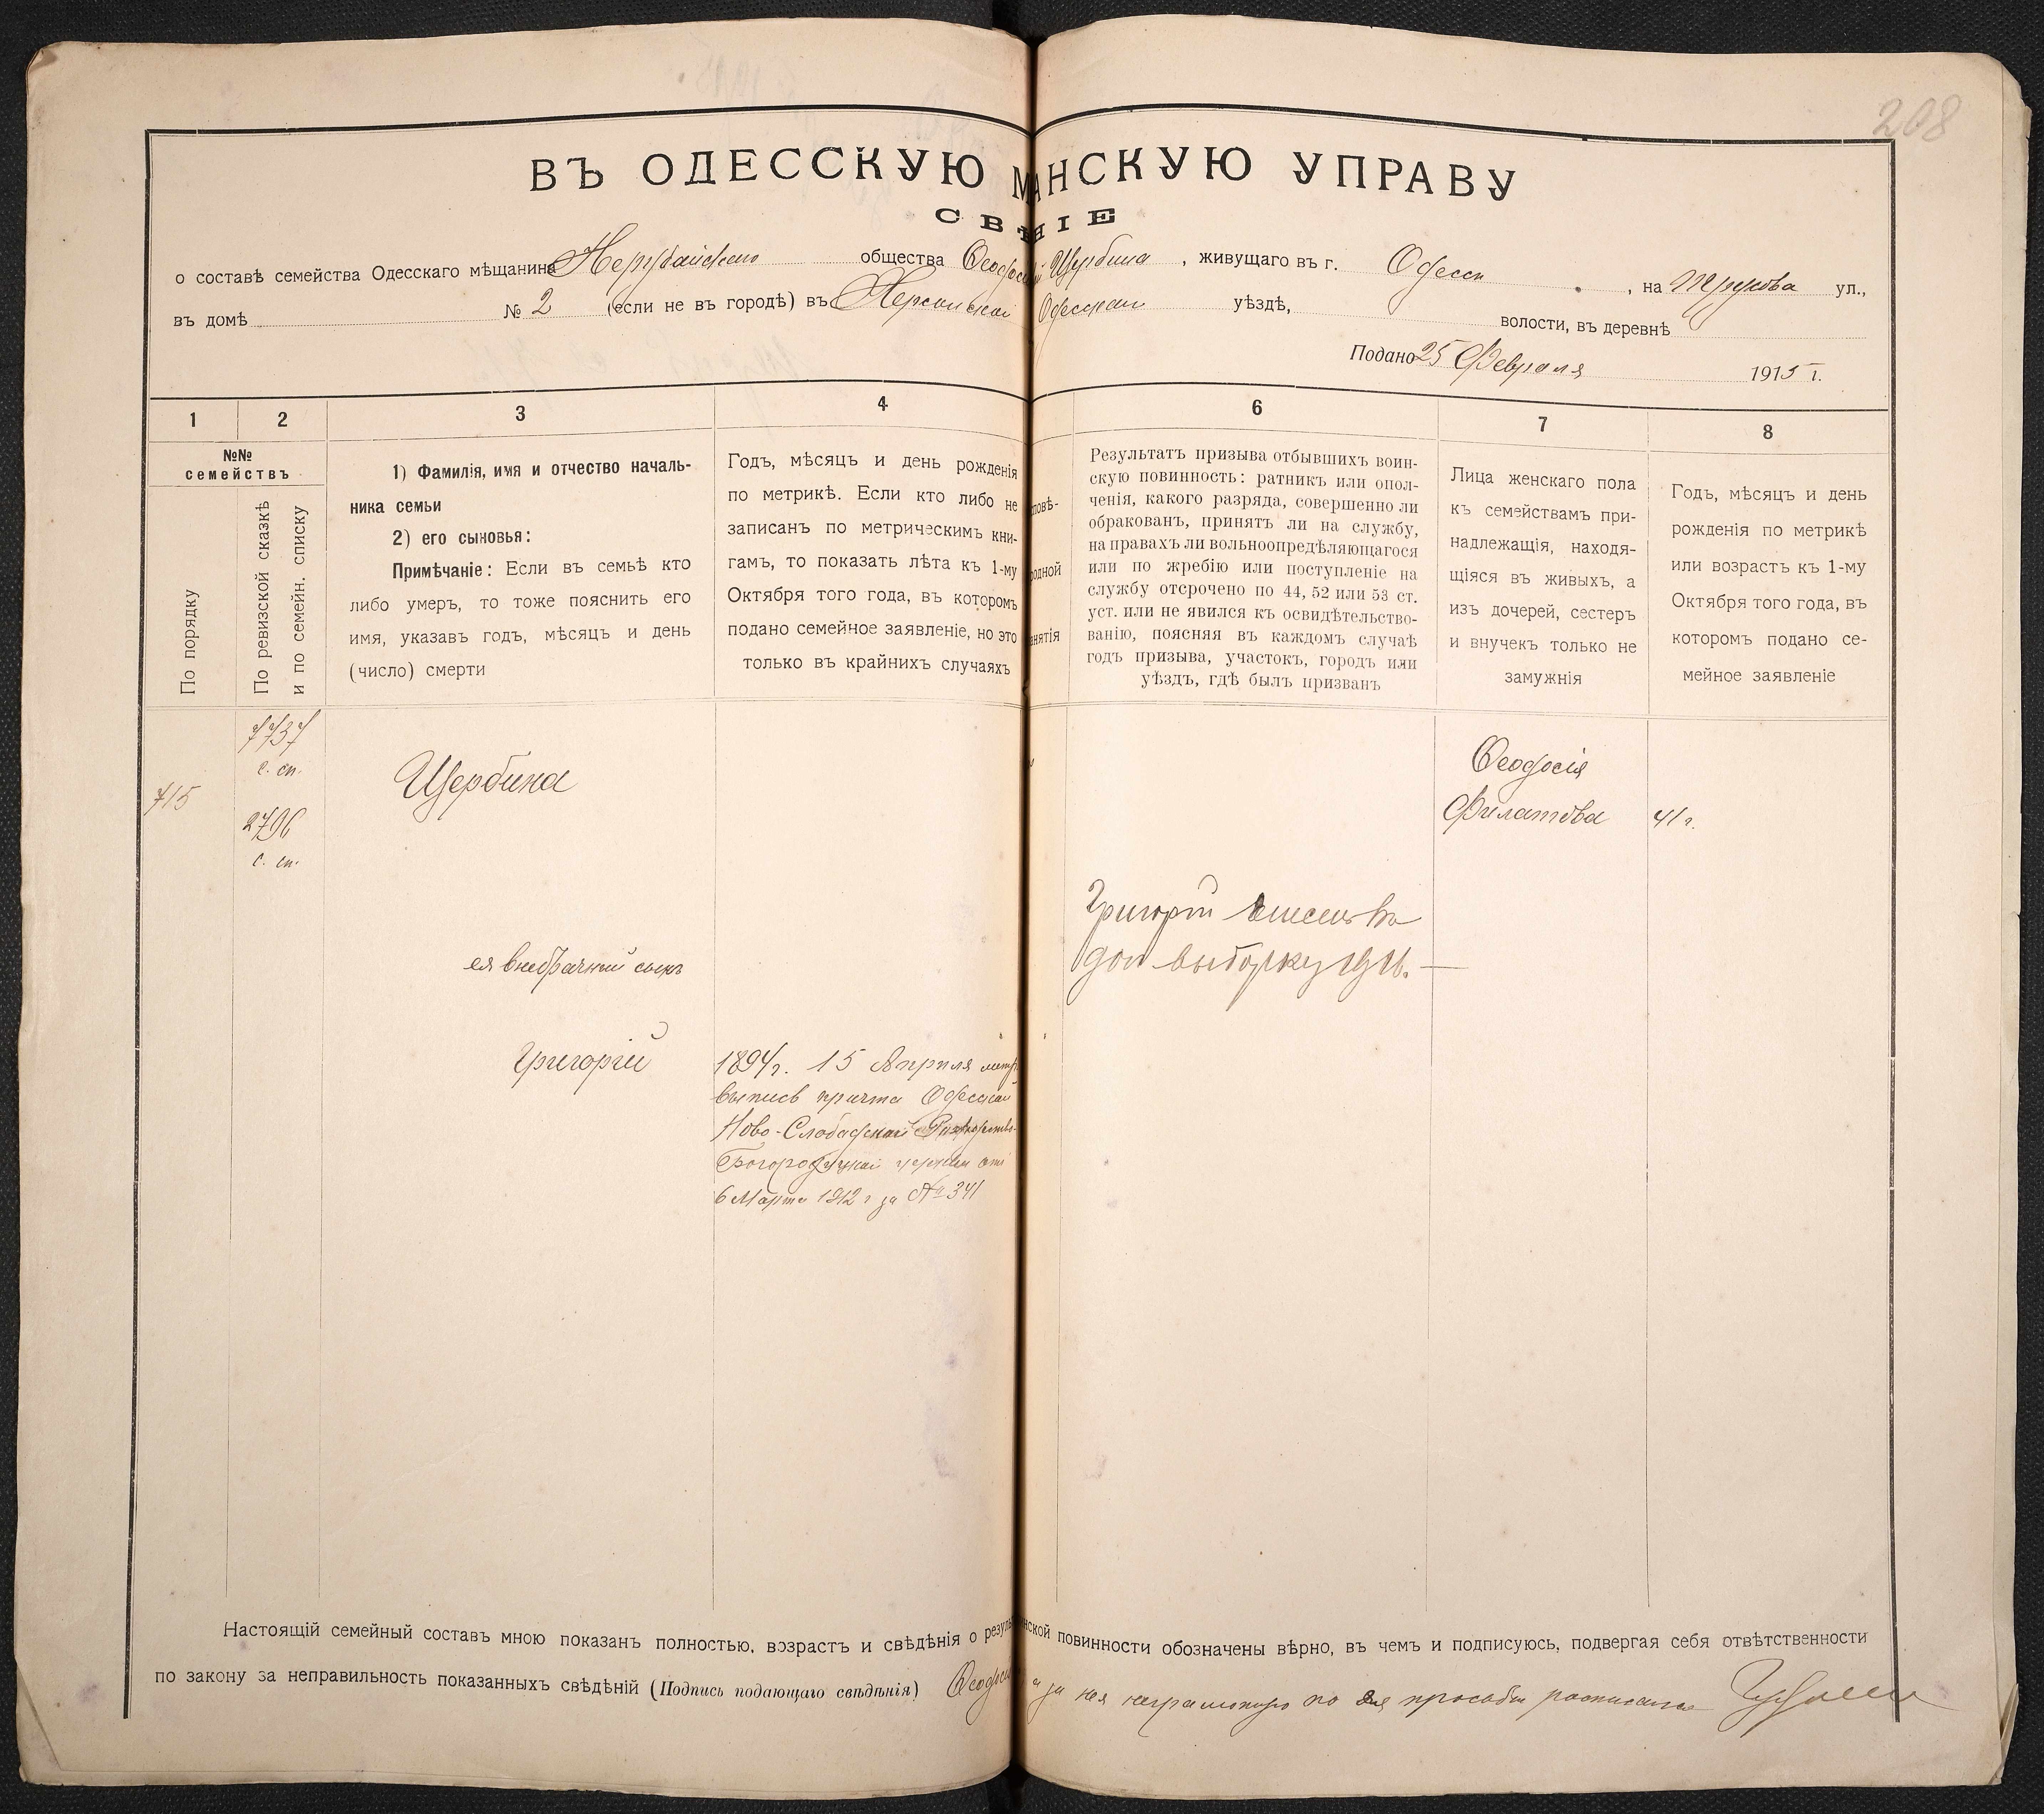 208
ВЪ ОДЕССКУЮ М АНСКУЮ УПРАВУ
СВѢ НІЕ
о составѣ семейства Одесскаго мѣщанина общества Ѳеодос Щербина, живущаго въ г. Одессы, на ул.,
въ домѣ № 2 (если не въ городѣ) въ Херсонской Одесскаго уѣздѣ, волости, въ деревнѣ
Подано 25 Февраля 1915 г.
1 2 3 4 6 7 8
№№
семействъ
По порядку
По ревизской сказкѣ
и по семейн. списку
1) Фамилія, имя и отчество началь-
ника семьи
2) его сыновья:
Примѣчаніе: Если въ семьѣ кто
либо умеръ, то тоже пояснить его
имя, указавъ годъ, мѣсяцъ и день
(число) смерти
Годъ, мѣсяцъ и день рожденія
по метрикѣ. Если кто либо не
записанъ по метрическимъ кни-
гамъ, то показать лѣта къ 1-му
Октября того года, въ которомъ
подано семейное заявленіе, но это
только въ крайнихъ случаяхъ
повѣ-
родной
анятія
Результатъ призыва отбывшихъ воин-
скую повинность: ратникъ или опол-
ченія, какого разряда, совершенно ли
обракованъ, принятъ ли на службу,
на правахъ ли вольноопредѣляющагося
или по жребію или поступленіе на
службу отсрочено по 44, 52 или 53 ст.
уст. или не явился къ освидѣтельство-
ванію, поясняя въ каждомъ случаѣ
годъ призыва, участокъ, городъ или
уѣздъ, гдѣ былъ призванъ
Лица женскаго пола
къ семействамъ при-
надлежащія, находя-
щіяся въ живыхъ, а
изъ дочерей, сестеръ
и внучекъ только не
замужнія
Годъ, мѣсяцъ и день
рожденія по метрикѣ
или возрастъ къ 1-му
Октября того года, въ
которомъ подано се-
мейное заявленіе
7737
с. сп.
715
2796
с. сп.
Щербина
Ѳеодосія
Филатова 41 г.
Григорій
доп выборку 1916.
ея внебрачный сынъ
Григорій
1894 г. 15 Апрѣля метр
выпись причта Одесской
Ново-Слободской Рождество-
Богородицкой церкви отъ
6 Марта 1912 г за № 341
Настоящій семейный составъ мною показанъ полностью, возрастъ и свѣдѣнія о резуль нской повинности обозначены вѣрно, въ чемъ и подписуюсь, подвергая себя отвѣтственности
по закону за неправильность показанныхъ свѣдѣній (Подпись подающаго свѣдѣнія) Ѳеодосія а за нея неграмотную по ея просьбѣ росписался